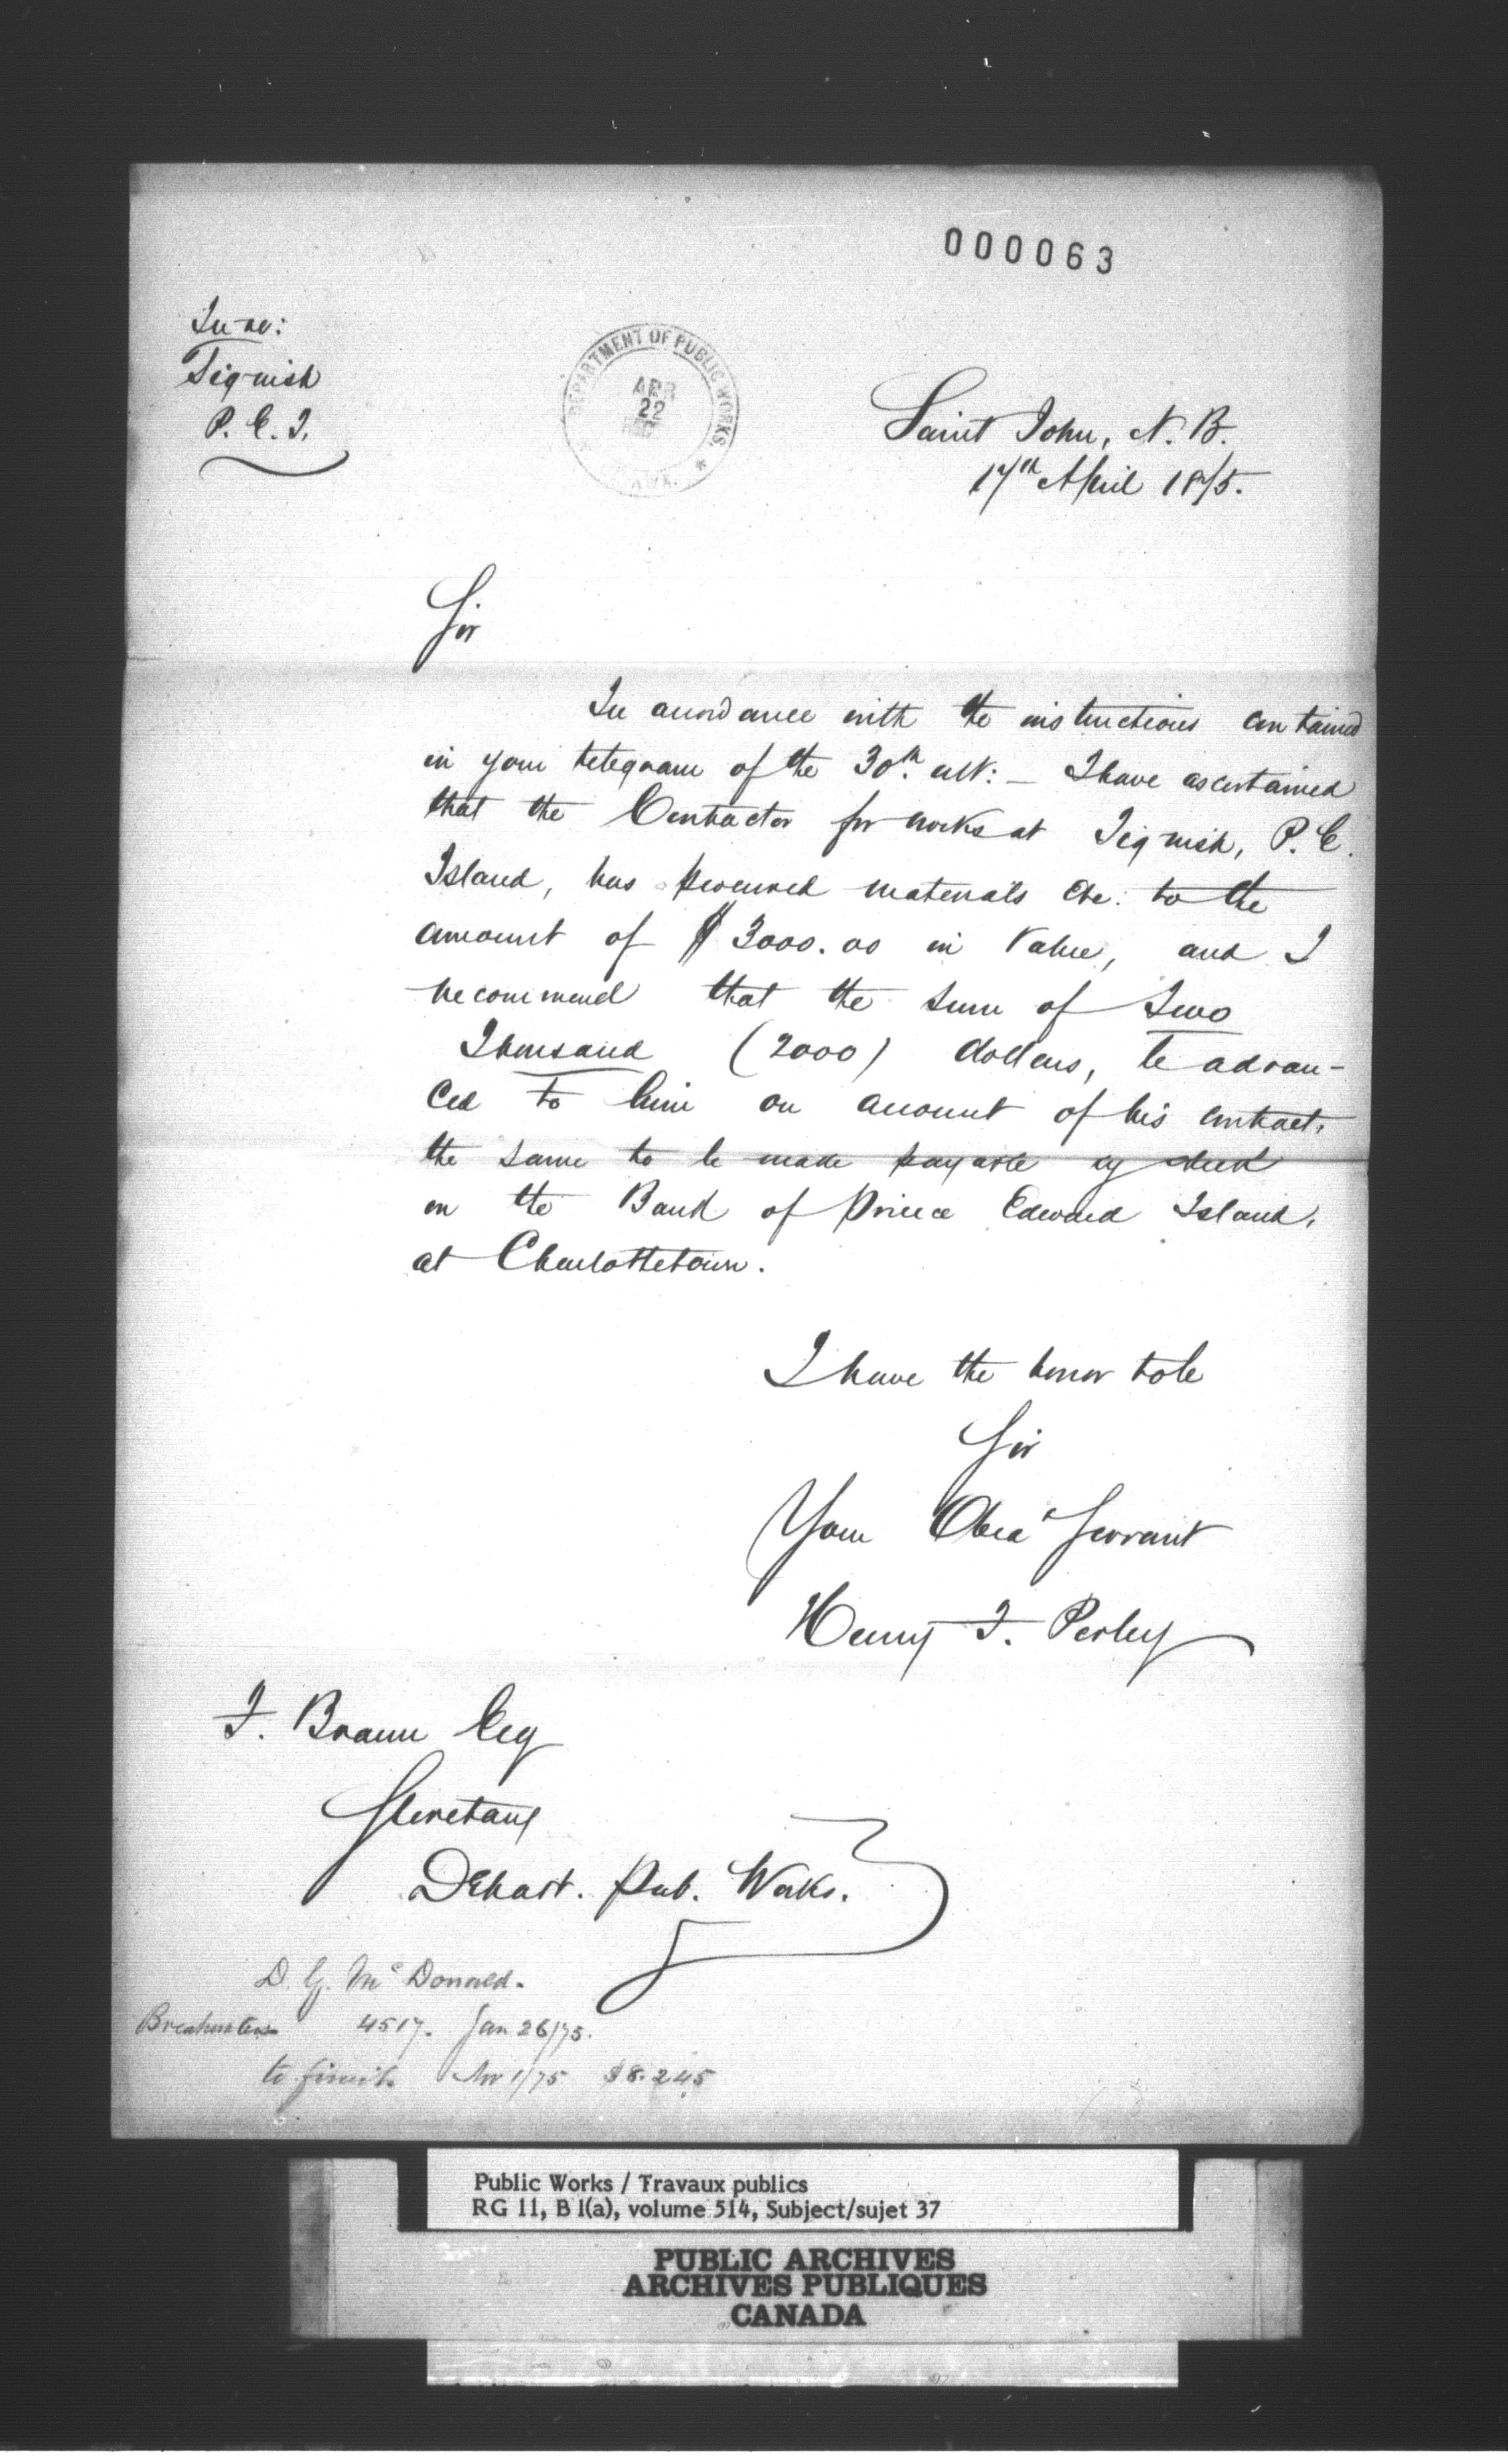 000063
In re:
Tignish
P. E. I.
DEPARTMENT OF PUBLIC WORKS.
APR
22
Saint John, N. B.
17th April 1875.
Sir
In accordance with the instructions contained
in your telegram of the 30th ult: – I have ascertained
that the Contractor for works at Tignish, P. E.
Island, has procured materials &c: to the
amount of $3000.00 in value, and I
recommend that the sum of Two
Thousand (2000) dollars, be advan-
ced to him on account of his contract,
the same to be made payable by check
on the Bank of Prince Edward Island,
at Charlottetown.
I have the honor to be
Sir
Your Obed Servant
Henry F. Perley
F. Braun Esq
Secretary
Depart. Pub. Works.
D. G. Mc Donald.
Breakwaters 4517. Jan 26/75.
to finish Nov 1/75 $8.245
Public Works / Travaux publics
RG 11, B 1(a), volume 514, Subject/sujet 37
PUBLIC ARCHIVES
ARCHIVES PUBLIQUES
CANADA